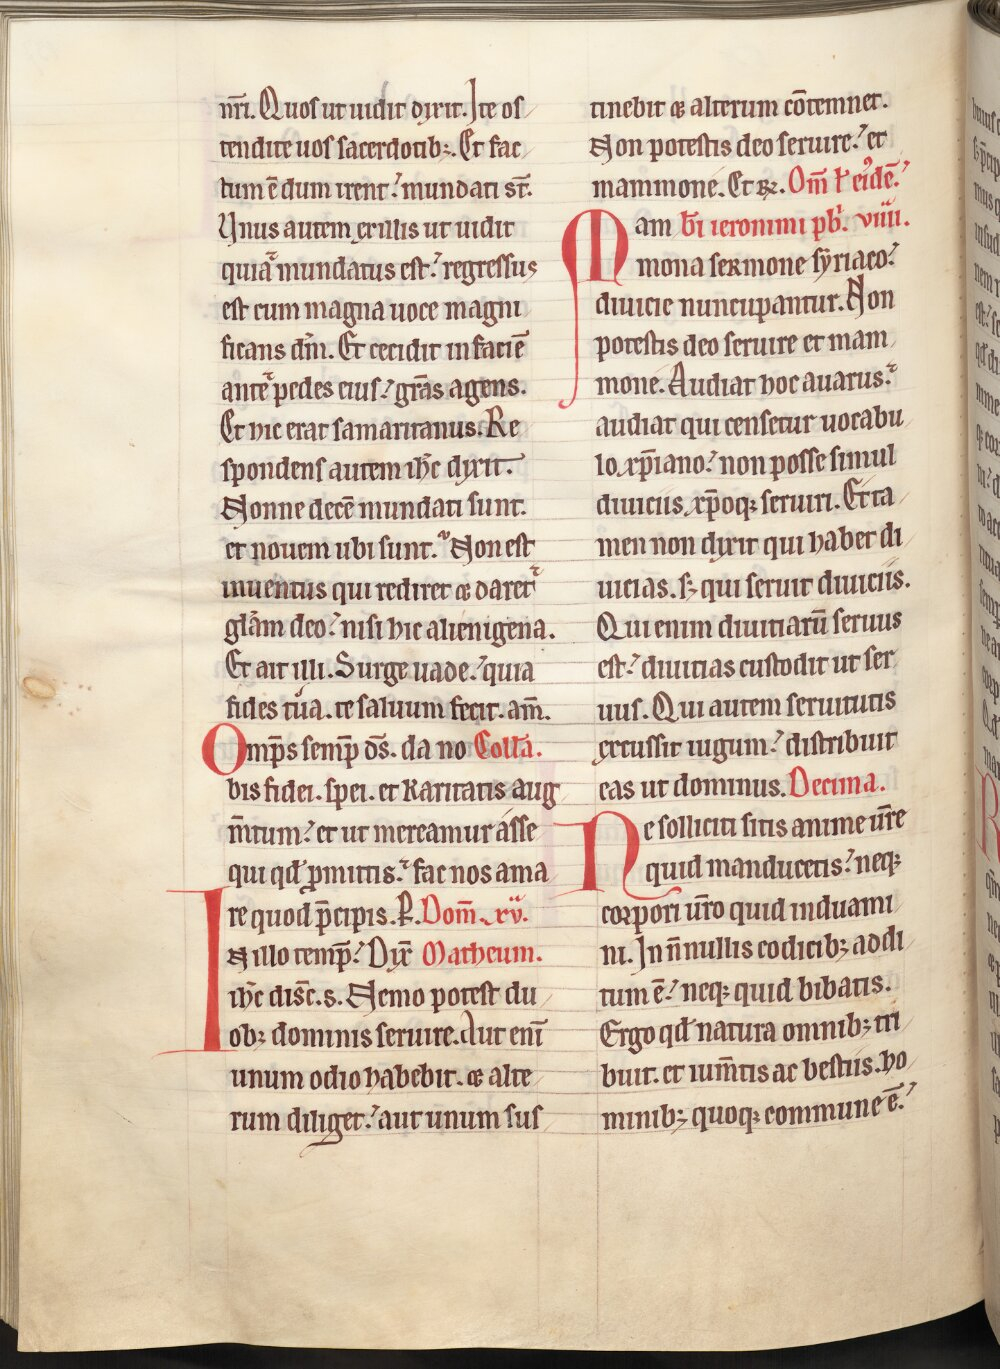 nr̄i. Quos ut uidit dixit. Ite os
tendite uos sacerdotibꝫ. Et fac
tum ē dum irent? mundati st̄.
Unus autem ex illis ut uidit
quia mundatus est? regressus
est cum magna uoce magni
ficans dm̄. Et cecidit in faciē
ante pedes eius? grās agens.
Et hic erat samaritanus. Re
spondens autem ihc̄ dixit.
Nonne decē mundati sunt.
et nouem ubi sunt. Non est
inuentus qui rediret & daret
glām deo? nisi hic alienigena.
Et ait illi. Surge uade? quia
fides tua. te saluum fecit. am̄.
Omp̄s semp̄ ds̄. da no Coll̄a.
bis fidei. spei. et karitatis aug
m̄tum? et ut mereamur asse
qui qd̄ ꝓmittis? fac nos ama
re quod p̄cipis. P. Dom̄. xv.
In illo temp̄? Dix̄ Matheum.
ihc̄ disc̄. s. Nemo potest du
obꝫ dominis seruire. Aut enī
unum odio habebit. & alte
rum diliget? aut unum sus
tinebit & alterum cōtemnet.
Non potestis deo seruire? et
mammone. Et R̄. Om̄ l̄ eidē?
Mam bī ieronimi pb̄r. viiii.
mona sermone syriaco?
diuicie nuncupantur. Non
potestis deo seruire et mam
mone. Audiat hoc auarus?
audiat qui censetur uocabu
lo xp̄iano? non posse simul
diuiciis xp̄oqꝫ seruiri. Et ta
men non dixit qui habet di
uicias. sꝫ qui seruit diuiciis.
Qui enim diuitiarū seruus
est? diuitias custodit ut ser
uus. Qui autem seruitutis
excussit iugum? distribuit
eas ut dominus. Decima.
Ne solliciti sitis anime ur̄e
quid manducetis? neqꝫ
corpori ur̄o quid induami
ni. In n̄nullis codicibꝫ addi
tum ē? neqꝫ quid bibatis.
Ergo qd̄ natura omnibꝫ tri
buit. et ium̄tis ac bestiis. ho
minibꝫ quoqꝫ commune ē?